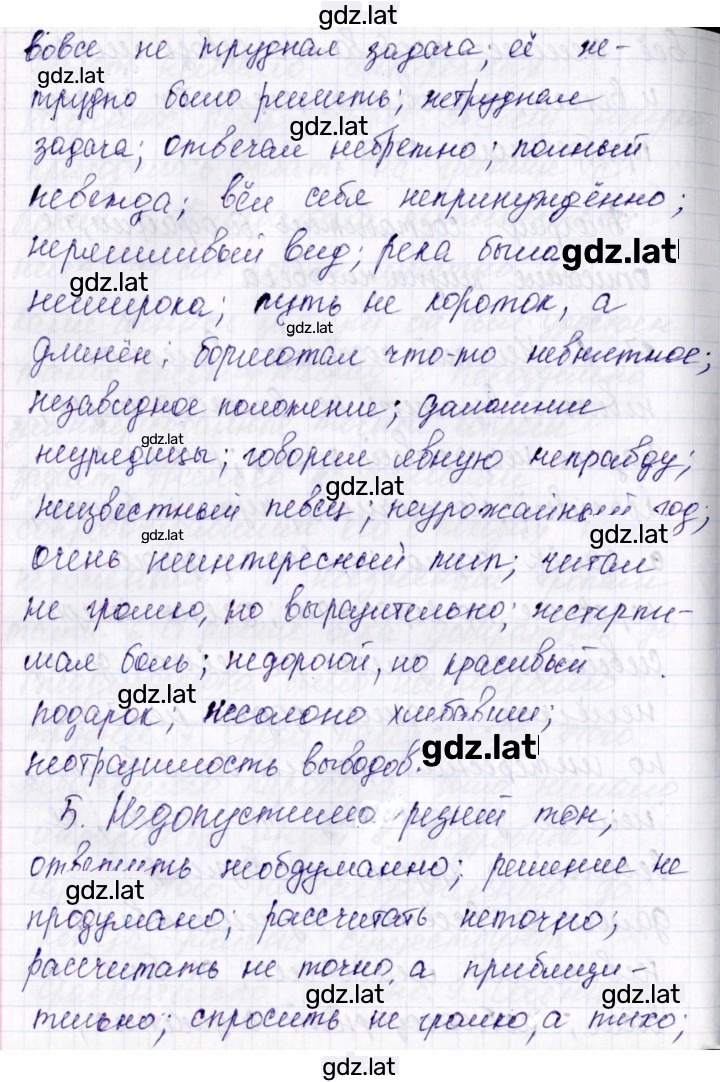 gdz.lat
вовсе не трудная задача; её не-
gdz.lat
трудно было решить; нетрудная
gdz.lat
задача; отвечал небрежно; полный
невежда; вёл себя непринуждённо;
неряшливый вид; река была gdz.lat
gdz.lat
неширока; путь не короток, а
gdz.lat
длинён; бормотал что-то невнятное;
незавидное положение; домашние
gdz.lat
неурядицы; говорил явную неправду;
gdz.lat
неизвестный певец; неурожайный год;
gdz.lat gdz.lat
очень неинтересный тип; читал
не громко, но выразительно; нестерпи-
мая боль; недорогой, но красивый
gdz.lat
подарок; несолоно хлебавши;
неотразимость выводов. gdz.lat
Б. Недопустимо резкий тон;
ответить необдуманно; решение не
gdz.lat
продумано; рассчитать неточно;
рассчитать не точно, а приблизи-
gdz.lat gdz.lat
тельно; спросить не громко, а тихо;
gdz.lat